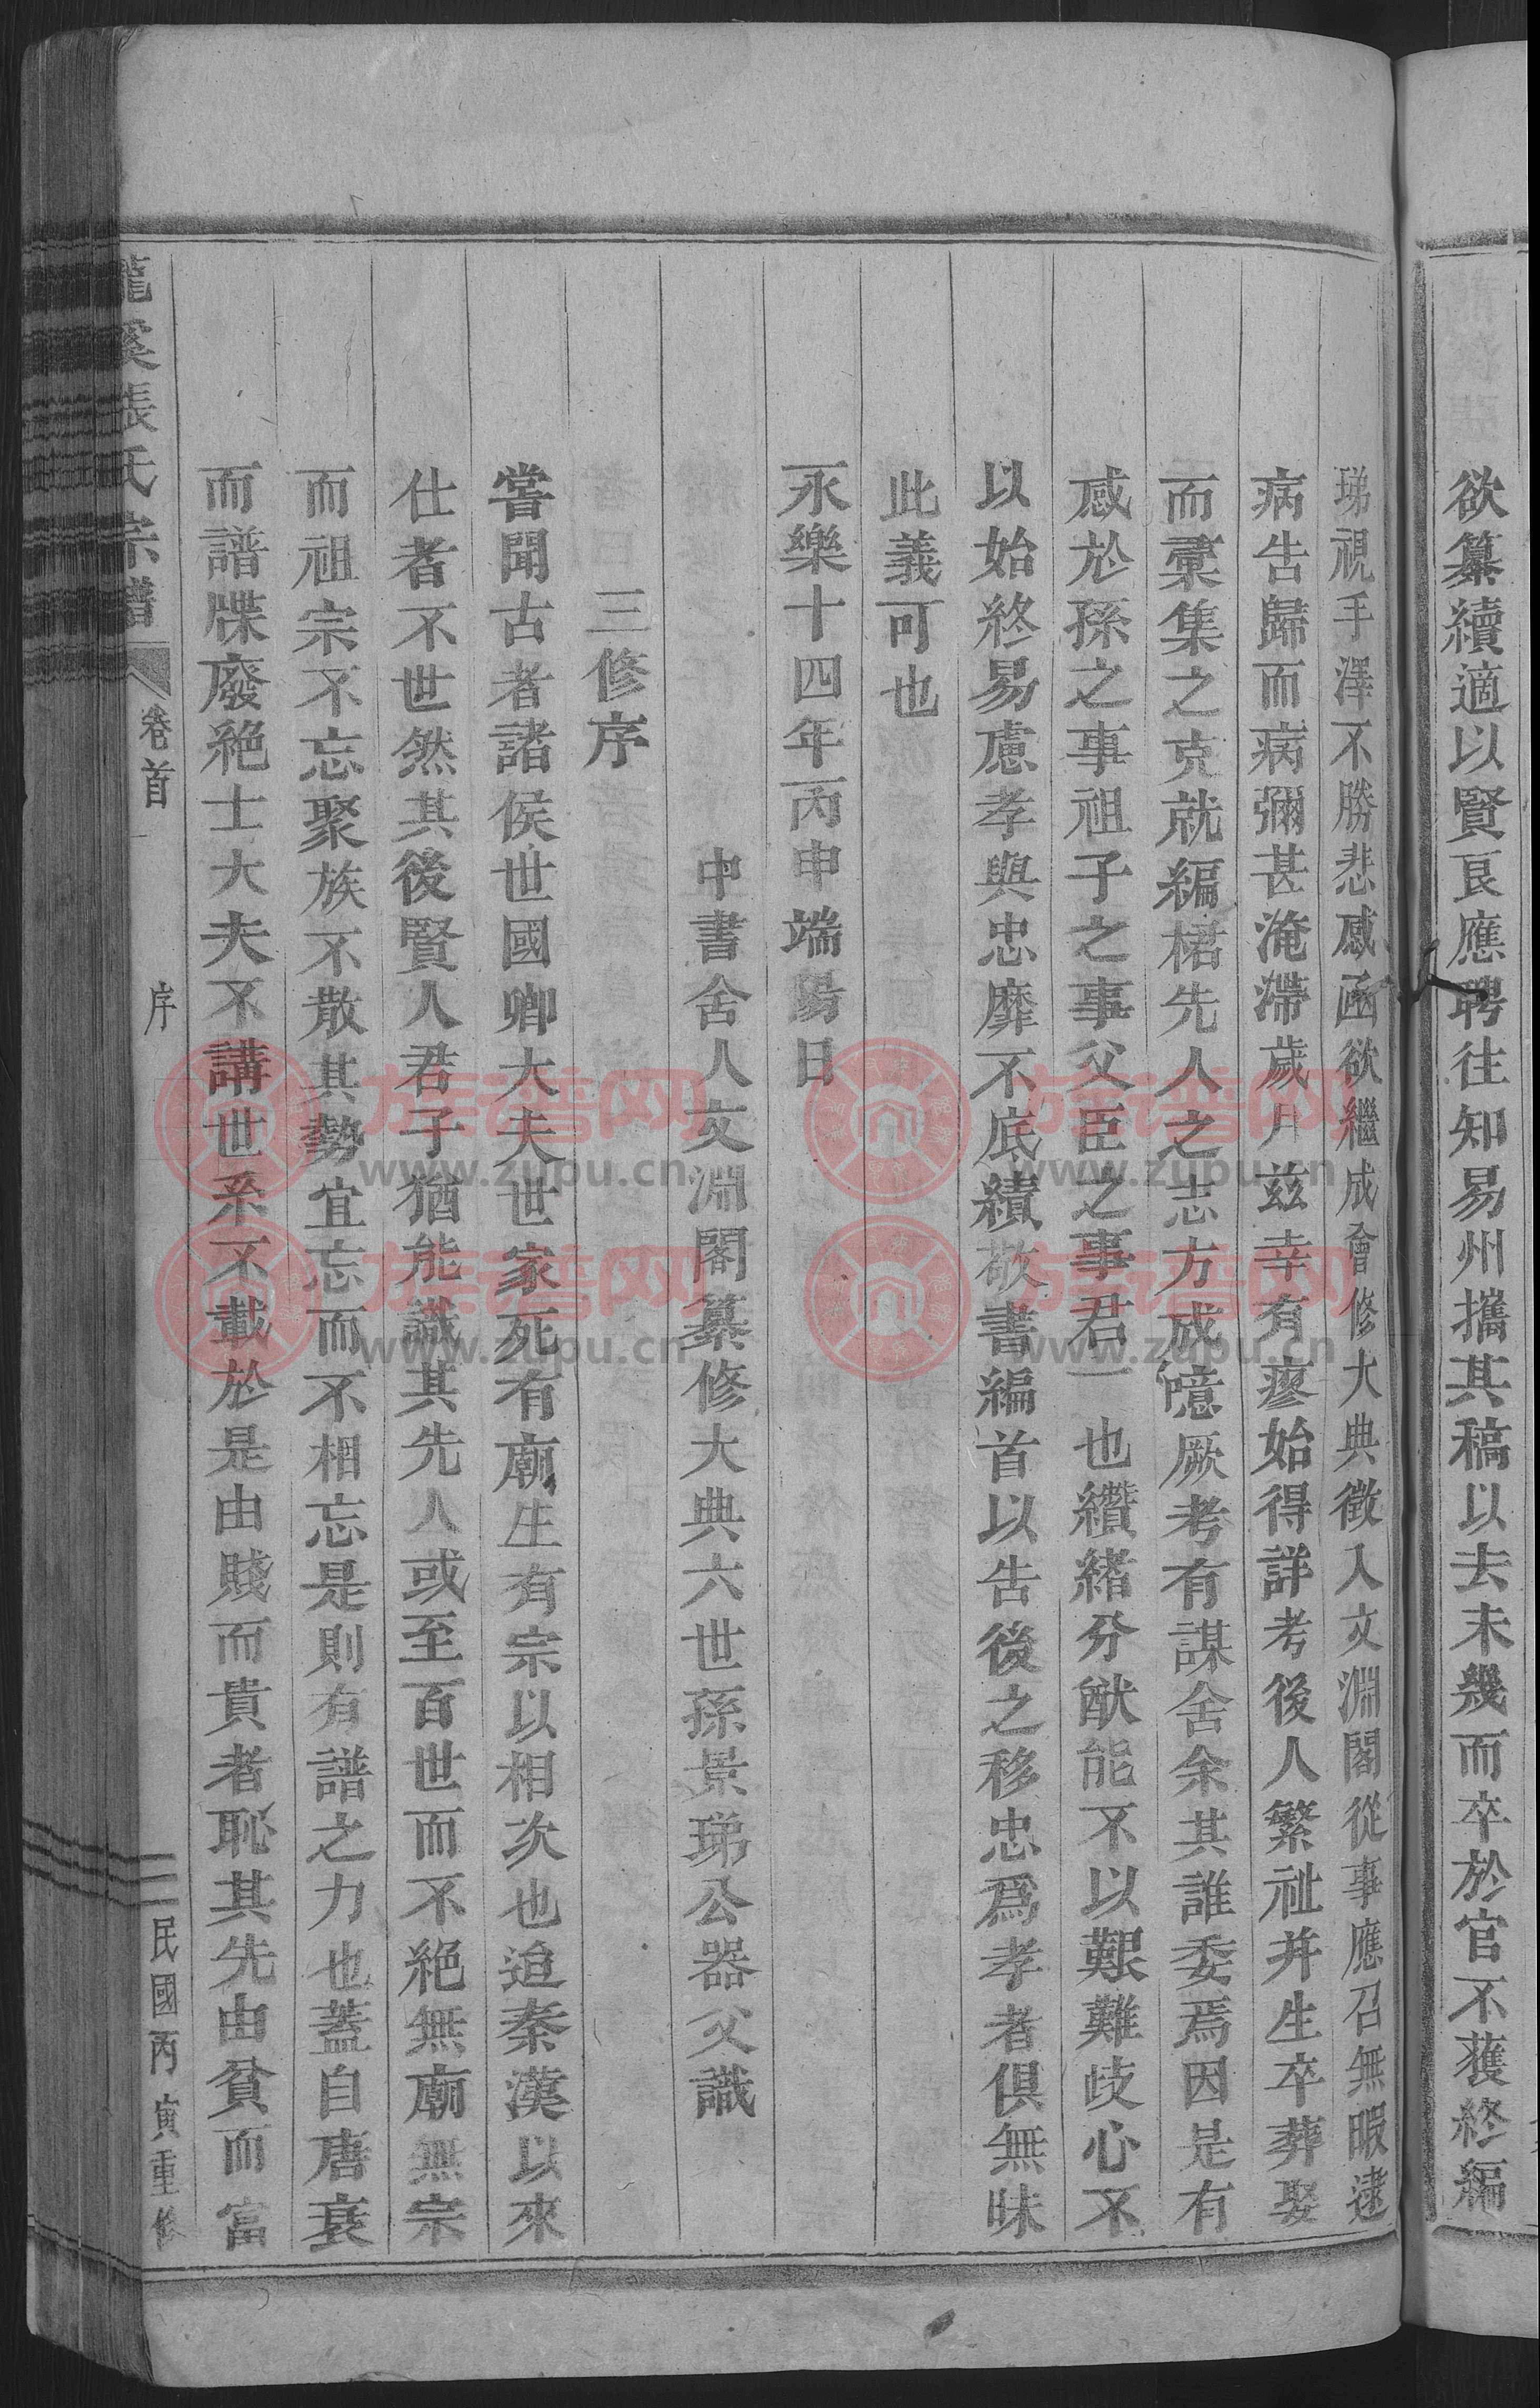 欲纂續適以賢良應聘往知易州攜其稿以去未幾而卒於官不獲終編
珶視手澤不勝悲感函欲繼成會修大典徵入文淵閣從事應召無暇逮
病告歸而病彌甚淹滯歲月玆幸有瘳始得詳考後人繁祉并生卒葬娶
而彙集之克就編桾先人之志方成憶厥考有謀舍余其誰委焉因是有
感於孫之事祖子之事父臣之事君一也纘緒分猷能不以艱難歧心不
以始終易慮孝與忠靡不底績敬書編首以告後之移忠爲孝者俱無昧
此義可也
永樂十四年丙申端陽日
中書舍人文淵閣纂修大典六世孫景珶公器父識
三修序
嘗聞古者諸侯世國卿大夫世家死有廟生有宗以相次也迨秦漢以來
仕者不世然其後賢人君子猶能識其先人或至百世而不絕無廟無宗
而祖宗不忘聚族不散其勢宜忘而不相忘是則有譜之力也蓋自唐衰
而譜牒廢絕士大夫不講世系不載於是由賤而貴者恥其先由貧而富
龍溪張氏宗譜 卷首 序 二 民國丙寅重修
族谱网
www.zupu.cn
族谱网
www.zupu.cn
族谱网
www.zupu.cn
族谱网
www.zupu.cn